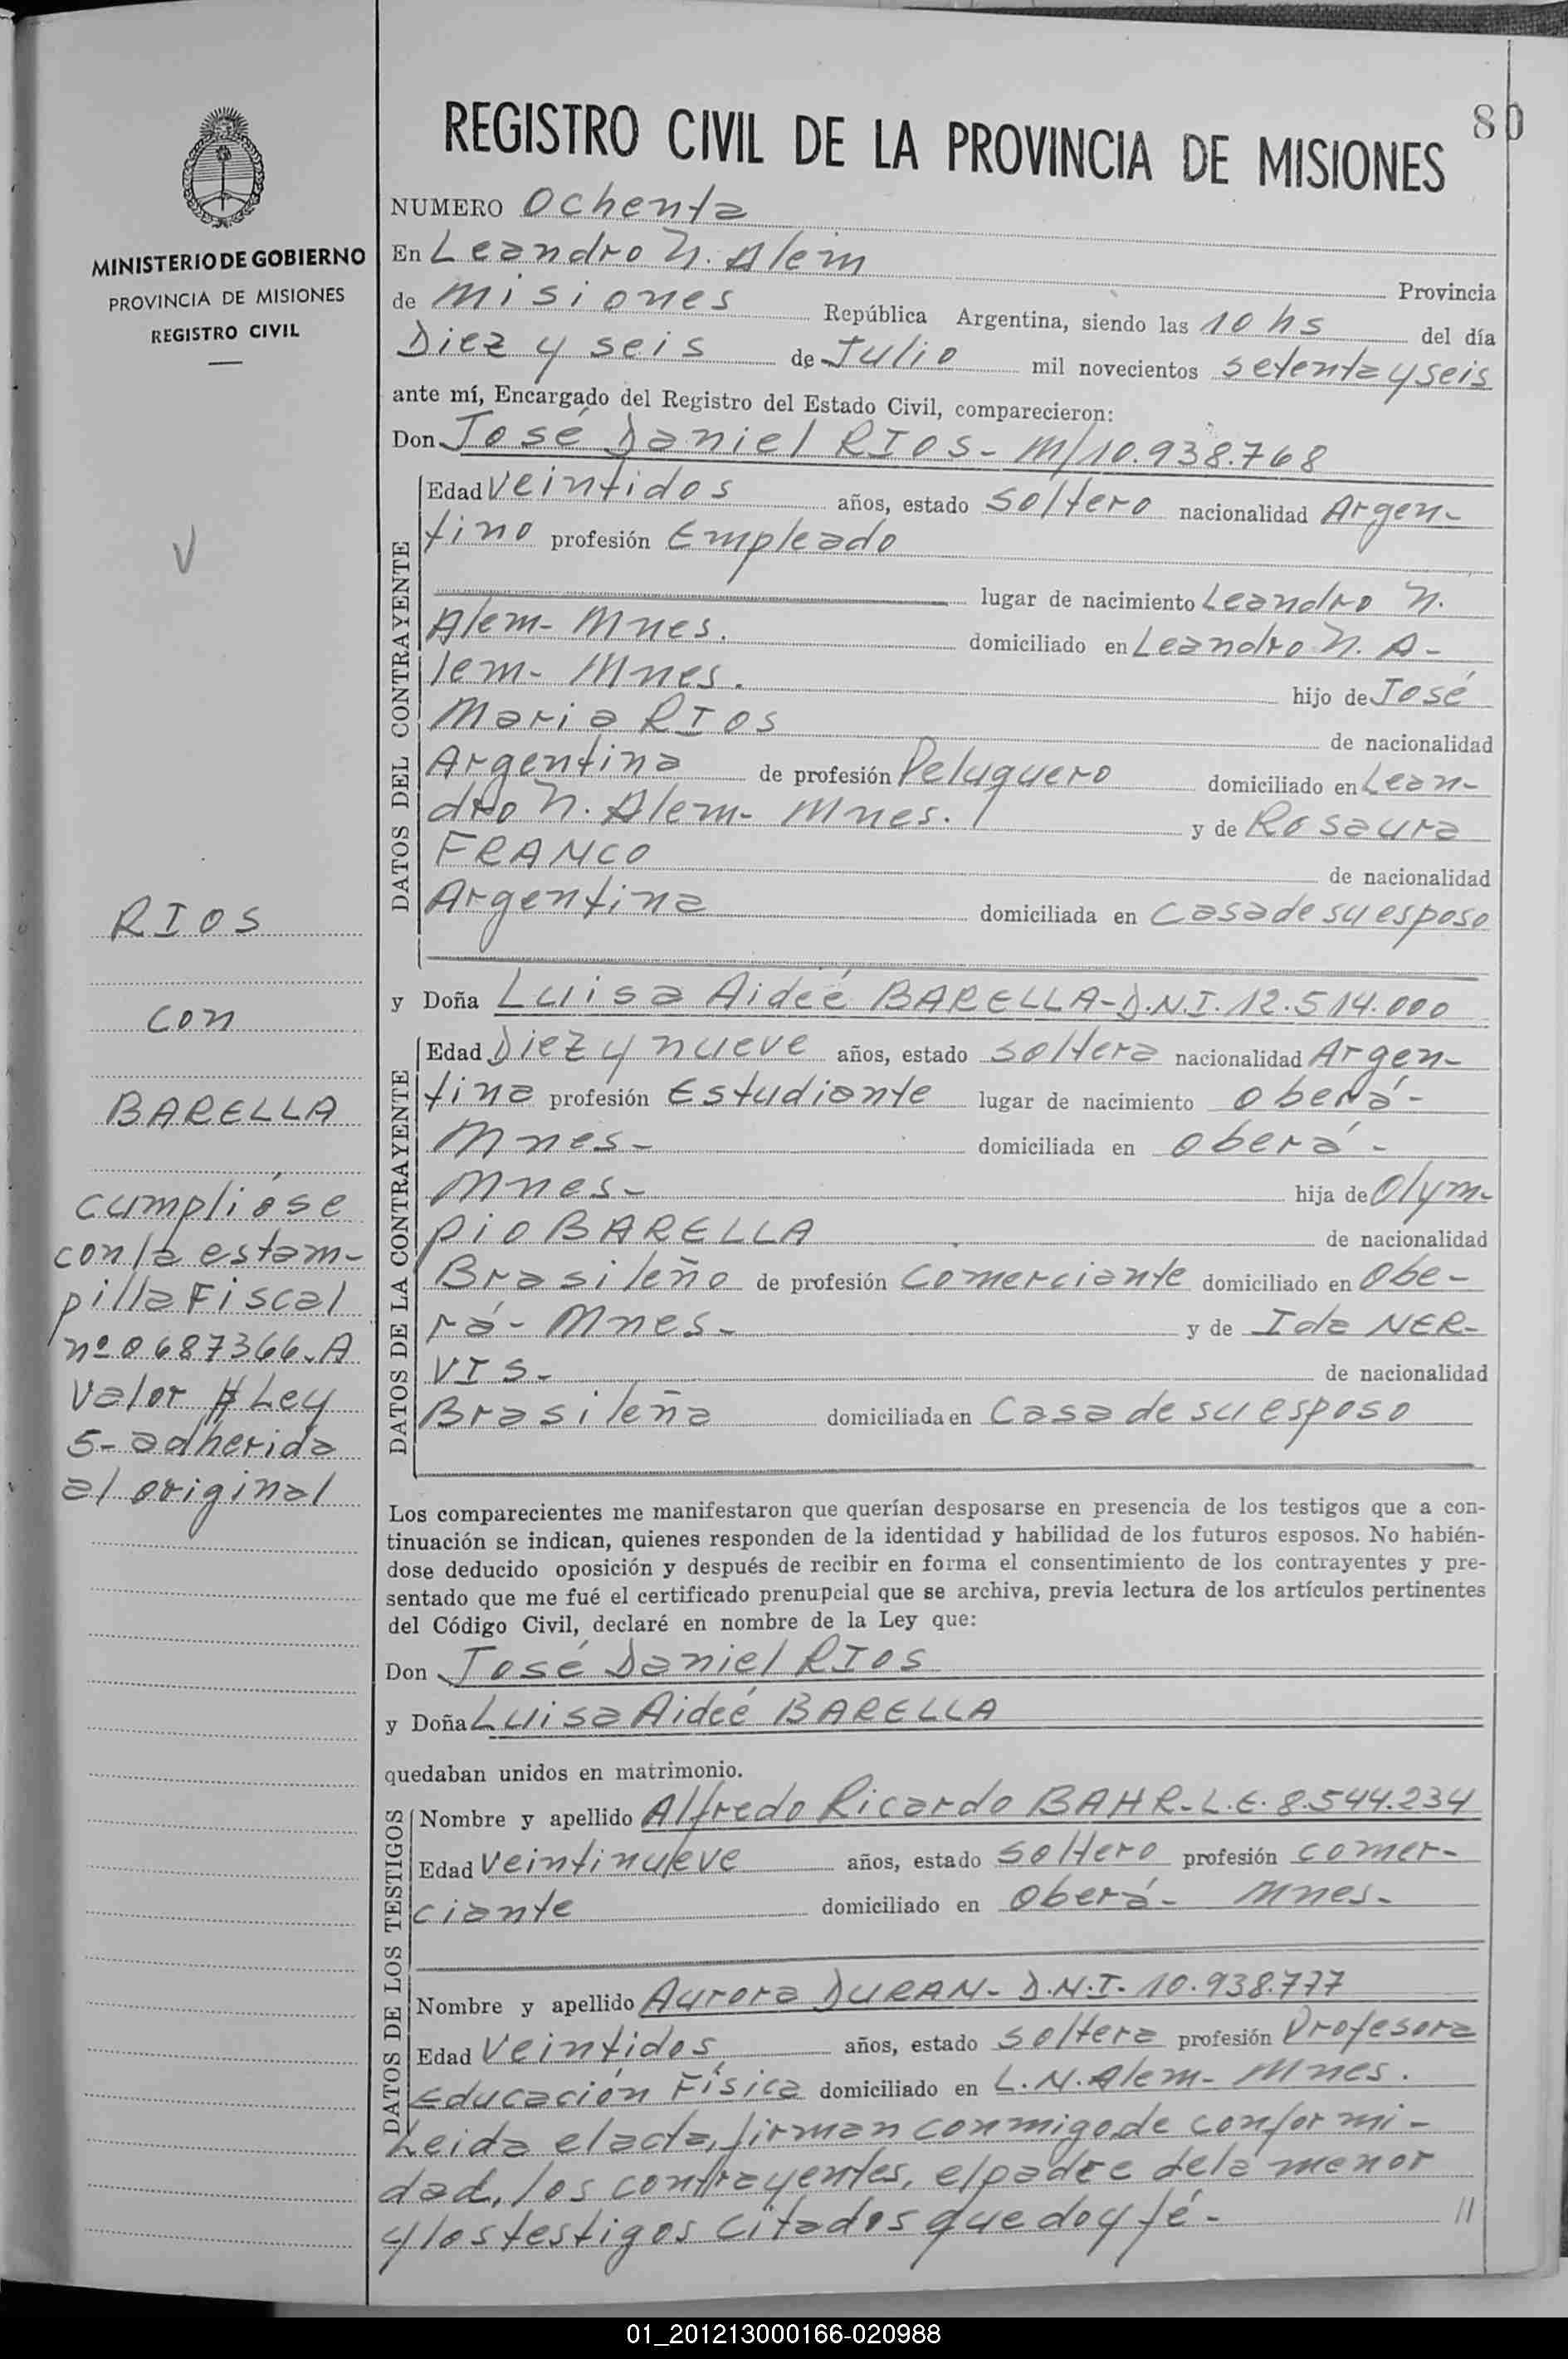 80
REGISTRO CIVIL DE LA PROVINCIA DE MISIONES
MINISTERIO DE GOBIERNO
PROVINCIA DE MISIONES
REGISTRO CIVIL
RIOS
con
BARELLA
cumplióse
con la estam-
pilla Fiscal
nº 0687366-A
Valor $ Ley
5- adherida
al original
NUMERO Ochenta
En Leandro N. Alem
Provincia
de Misiones República Argentina, siendo las 10 hs del día
Diez y seis de Julio mil novecientos setenta y seis
ante mí, Encargado del Registro del Estado Civil, comparecieron:
Don José Daniel RIOS- M/10.938.768
DATOS DEL CONTRAYENTE
Edad Veintidos años, estado Soltero nacionalidad Argen-
tino profesión Empleado
lugar de nacimiento Leandro N.
Alem- Mnes. domiciliado en Leandro N. A-
lem- Mnes. hijo de José
Maria RIOS de nacionalidad
Argentina de profesión Peluquero domiciliado en Lean-
dro N. Alem- Mnes. y de Rosaura
FRANCO de nacionalidad
Argentina domiciliada en Casa de su esposo
y Doña Luisa Aideé BARELLA-D.N.I. 12.514.000
DATOS DE LA CONTRAYENTE
Edad Diez y nueve años, estado soltera nacionalidad Argen-
tina profesión Estudiante lugar de nacimiento Oberá-
Mnes- domiciliada en Oberá-
Mnes- hija de Olym-
pio BARELLA de nacionalidad
Brasileño de profesión Comerciante domiciliado en Obe-
rá- Mnes- y de Ida NER-
VIS- de nacionalidad
Brasileña domiciliada en Casa de su esposo
Los comparecientes me manifestaron que querían desposarse en presencia de los testigos que a con-
tinuación se indican, quienes responden de la identidad y habilidad de los futuros esposos. No habién-
dose deducido oposición y después de recibir en forma el consentimiento de los contrayentes y pre-
sentado que me fué el certificado prenupcial que se archiva, previa lectura de los artículos pertinentes
del Código Civil, declaré en nombre de la Ley que:
Don José Daniel RIOS
y Doña Luisa Aideé BARELLA
quedaban unidos en matrimonio.
DATOS DE LOS TESTIGOS
Nombre y apellido Alfredo Ricardo BAHR-L.E. 8.544.234
Edad Veintinueve años, estado soltero profesión comer-
ciante domiciliado en Oberá- Mnes-
Nombre y apellido Aurora DURAN- D.N.I- 10.938.777
Edad Veintidos años, estado soltera profesión Profesora
Educación Física domiciliado en L.N. Alem- Mnes.
Leida el acta, firman conmigo de conformi-
dad, los contrayentes, el padre de la menor
y los testigos citados que doy fé- //
01_201213000166-020988